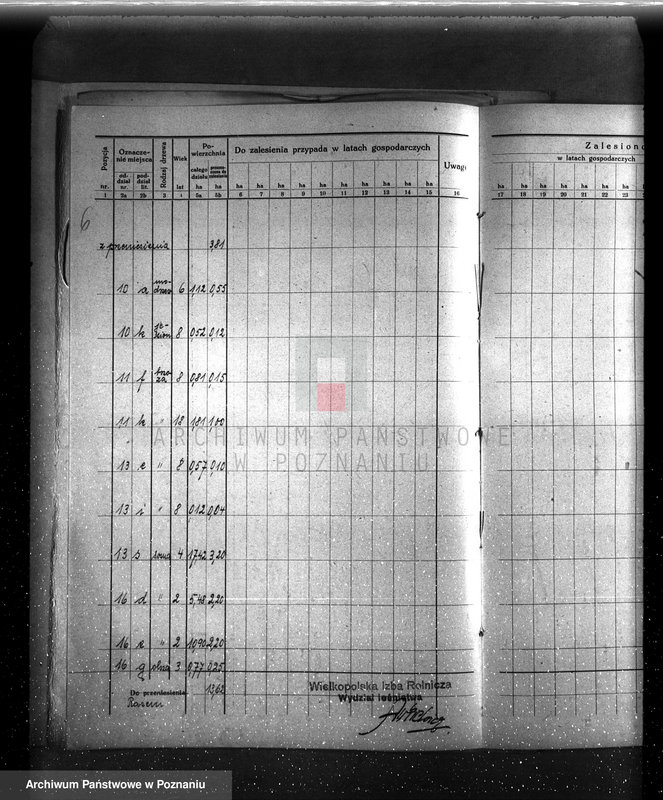 6
Pozycja nr.
Oznaczenie miejsca
oddział nr.
poddział lit.
Rodzaj drzewa
Wiek lat
Powierzchnia
całego działu ha
Do zalesienia przypada w latach gospodarczych
ha ha ha ha ha ha ha ha ha ha
Uwagi
1 2a 2b 3 4 5a 5b 6 7 8 9 10 11 12 13 14 15 16
Zalesiono
w latach gospodarczych
ha ha ha ha ha ha
17 18 19 20 21 22 23
z przeniesienia 3,81
10 a modrzew 6 1,12 0,55
10 k 8 0,52 0,12
11 f brzoza 8 0,81 0,15
11 k " 18 1,81 1,00
13 e " 8 0,57 0,10
13 i " 8 0,12 0,04
13 s sosna 4 17,42 3,20
16 d " 2 5,48 2,20
16 e " 2 10,90 2,20
16 g olsza 3 0,77 0,25
Do przeniesienia 13,62
Razem
Wielkopolska Izba Rolnicza
Wydział leśnictwa
ARCHIWUM PAŃSTWOWE
W POZNANIU
Archiwum Państwowe w Poznaniu